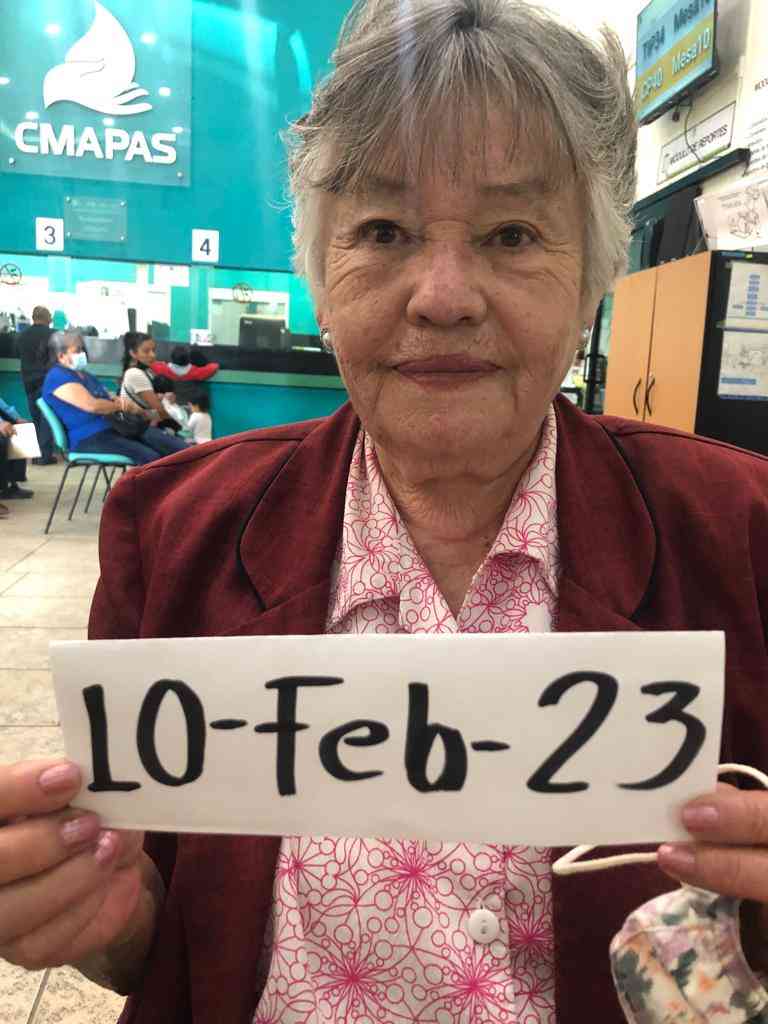 CMAPAS
3
4
TIP34 Mesa10
CP40 Mesa10
MODULO DE REPORTES
10-Feb-23